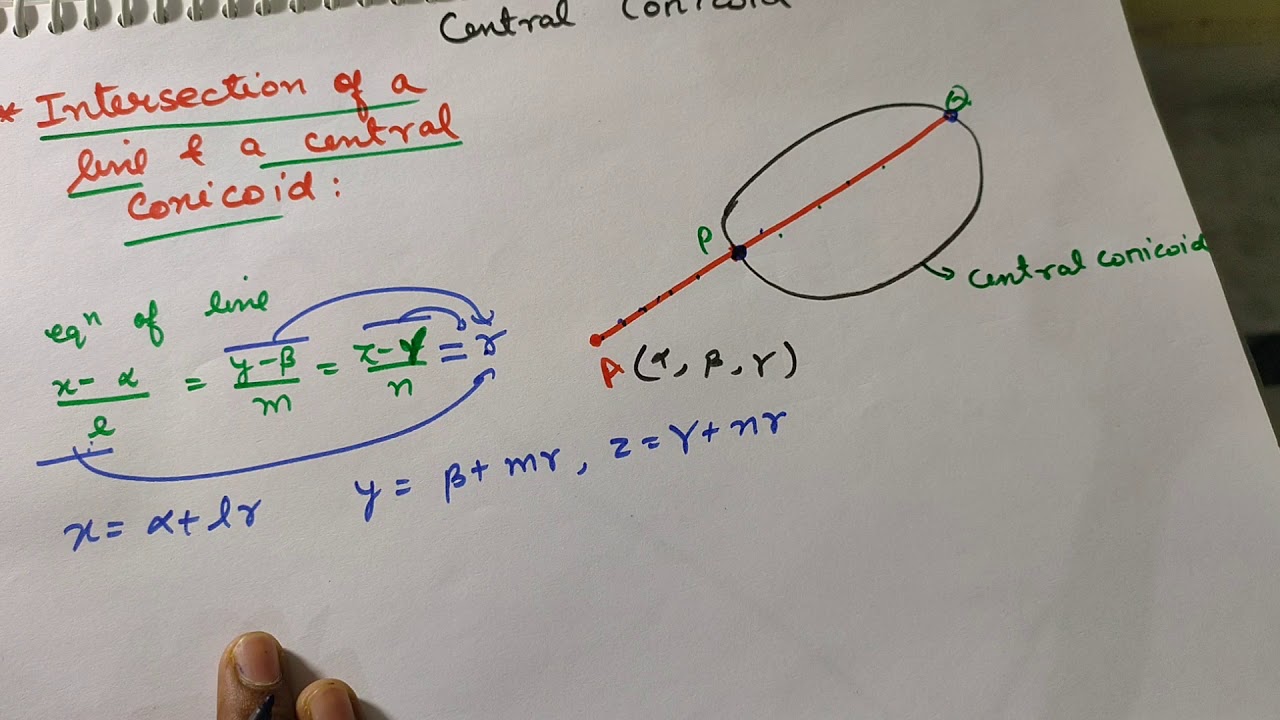 Central Conicoid
* Intersection of a
line & a central
Conicoid :
eqⁿ of line
x-α/l = y-β/m = z-γ/n = r
x = α+lr y = β+mr, z = γ+nr
Q
P
central conicoid
A (α, β, γ)